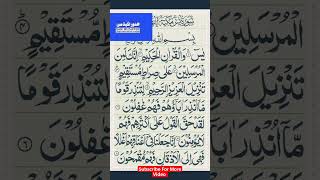 يٰسٓ وَالْقُرْاٰنِ الْحَكِيْمِ اِنَّكَ لَمِنَ
الْمُرْسَلِيْنَ عَلٰى صِرَاطٍ مُّسْتَقِيْمٍ
تَنْزِيْلَ الْعَزِيْزِ الرَّحِيْمِ لِتُنْذِرَ قَوْمًا
مَّآ اُنْذِرَ اٰبَآؤُهُمْ فَهُمْ غٰفِلُوْنَ
لَقَدْ حَقَّ الْقَوْلُ عَلٰٓى اَكْثَرِهِمْ فَهُمْ
لَا يُؤْمِنُوْنَ اِنَّا جَعَلْنَا فِيْٓ اَعْنَاقِهِمْ اَغْلٰلًا
فَهِيَ اِلَى الْاَذْقَانِ فَهُمْ مُّقْمَحُوْنَ
Subscribe For More
Video